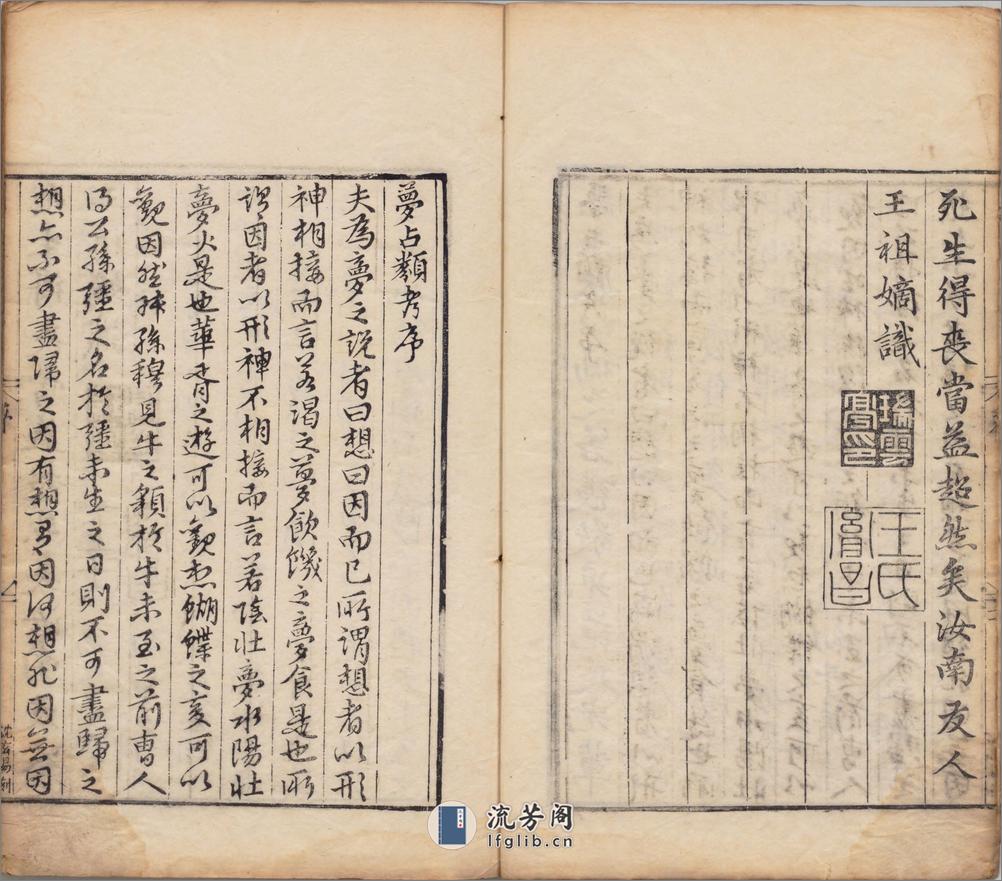 死生得喪當益超然矣汝南友人
王祖嫡識
瑞雲
王氏
夢占類考序
夫為夢之說者曰想曰因而已所謂想者以形
神相接而言若渴之夢飲饑之夢食是也所
謂因者以形神不相接而言若陰壯夢水陽壯
夢火是也華胥之遊可以觀想蝴蝶之變可以
觀因然叔孫穆見牛之貌於牛未至之前曹人
得公孫彊之名於彊未生之日則不可盡歸之
想亦不可盡歸之因有想有因何想非因無因
序
流芳阁
lfglib.cn